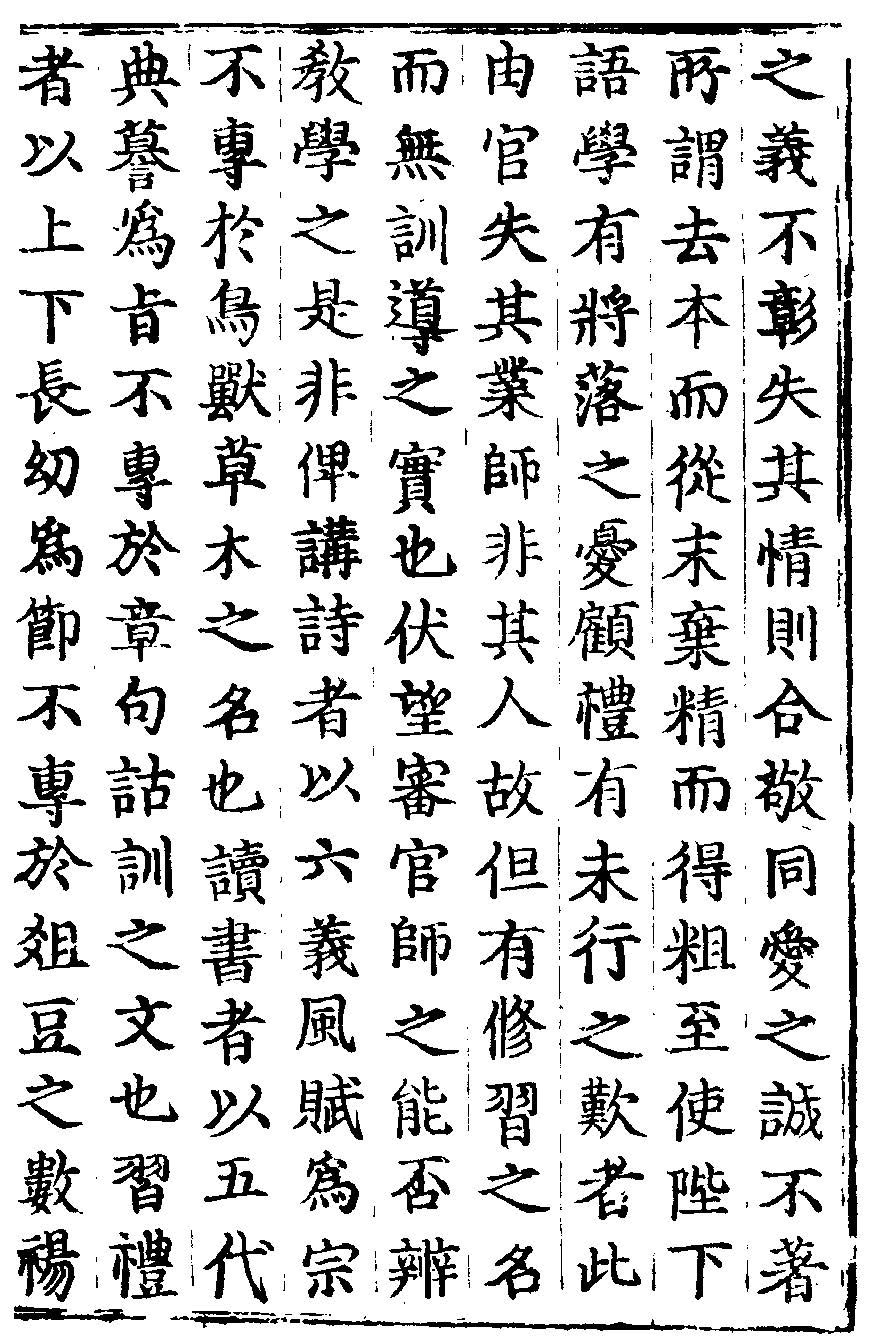 之義不彰失其情則合敬同愛之誠不著
所謂去本而從末棄精而得粗至使陛下
語學有將落之憂顧禮有未行之歎者此
由官失其業師非其人故但有修習之名
而無訓導之實也伏望審官師之能否辨
教學之是非俾講詩者以六義風賦為宗
不專於鳥獸草木之名也讀書者以五代
典謩為旨不專於章句詁訓之文也習禮
者以上下長幼為節不專於俎豆之數禓